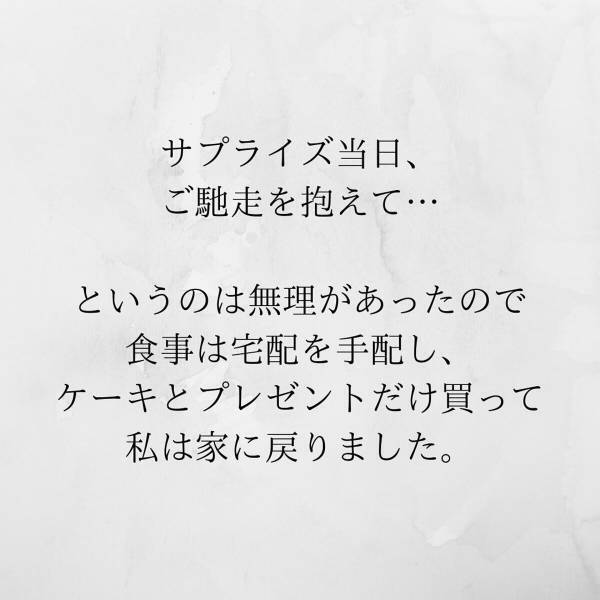 サプライズ当日、
ご馳走を抱えて…
というのは無理があったので
食事は宅配を手配し、
ケーキとプレゼントだけ買って
私は家に戻りました。